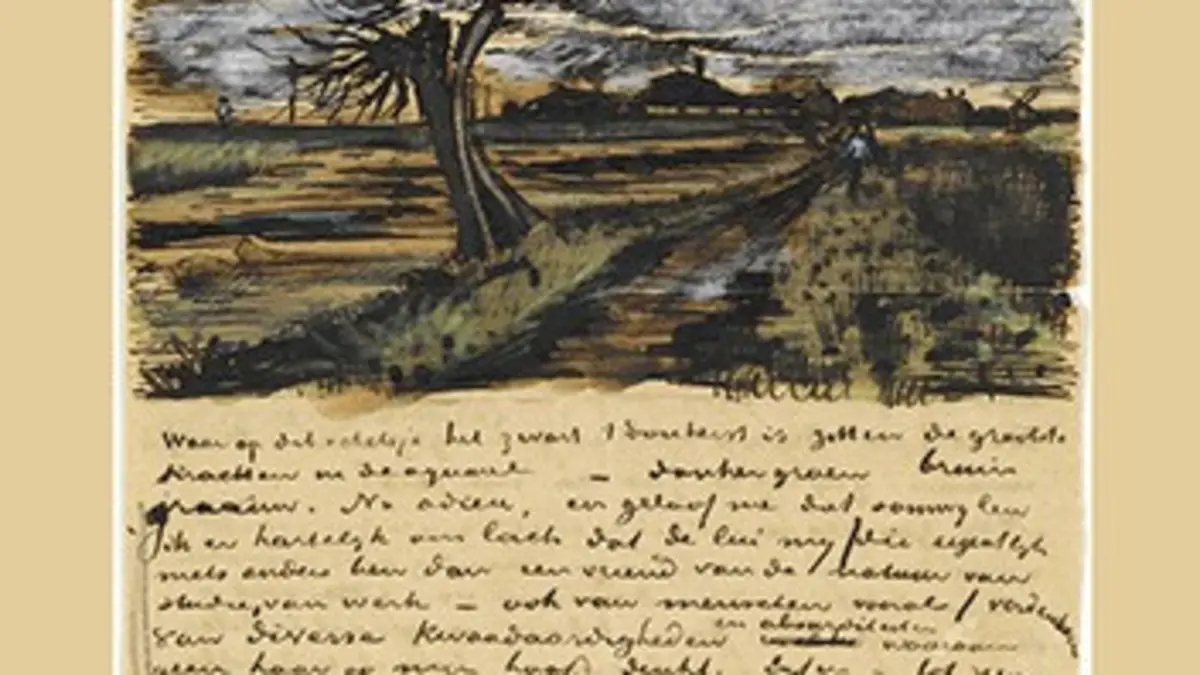 Waar op dit schetsje het zwart 't donkerst is zitten de grootste
krachten in de aquarel — donkergroen bruin
graauw. Nu adieu, en geloof me dat somwijlen
ik er hartelijk om lach dat de lui mij /die eigentlijk
niets anders ben dan een vriend van de natuur van
studie, van werk — ook van menschen vooral/ verdenken
van diverse kwaadaardigheden en absurditeiten waaraan
geen haar op mijn hoofd denkt. Enfin — tot